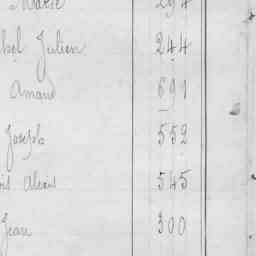 Marie 294
Julien 244
Amand 691
Joseph 552
Alexis 545
Jean 300